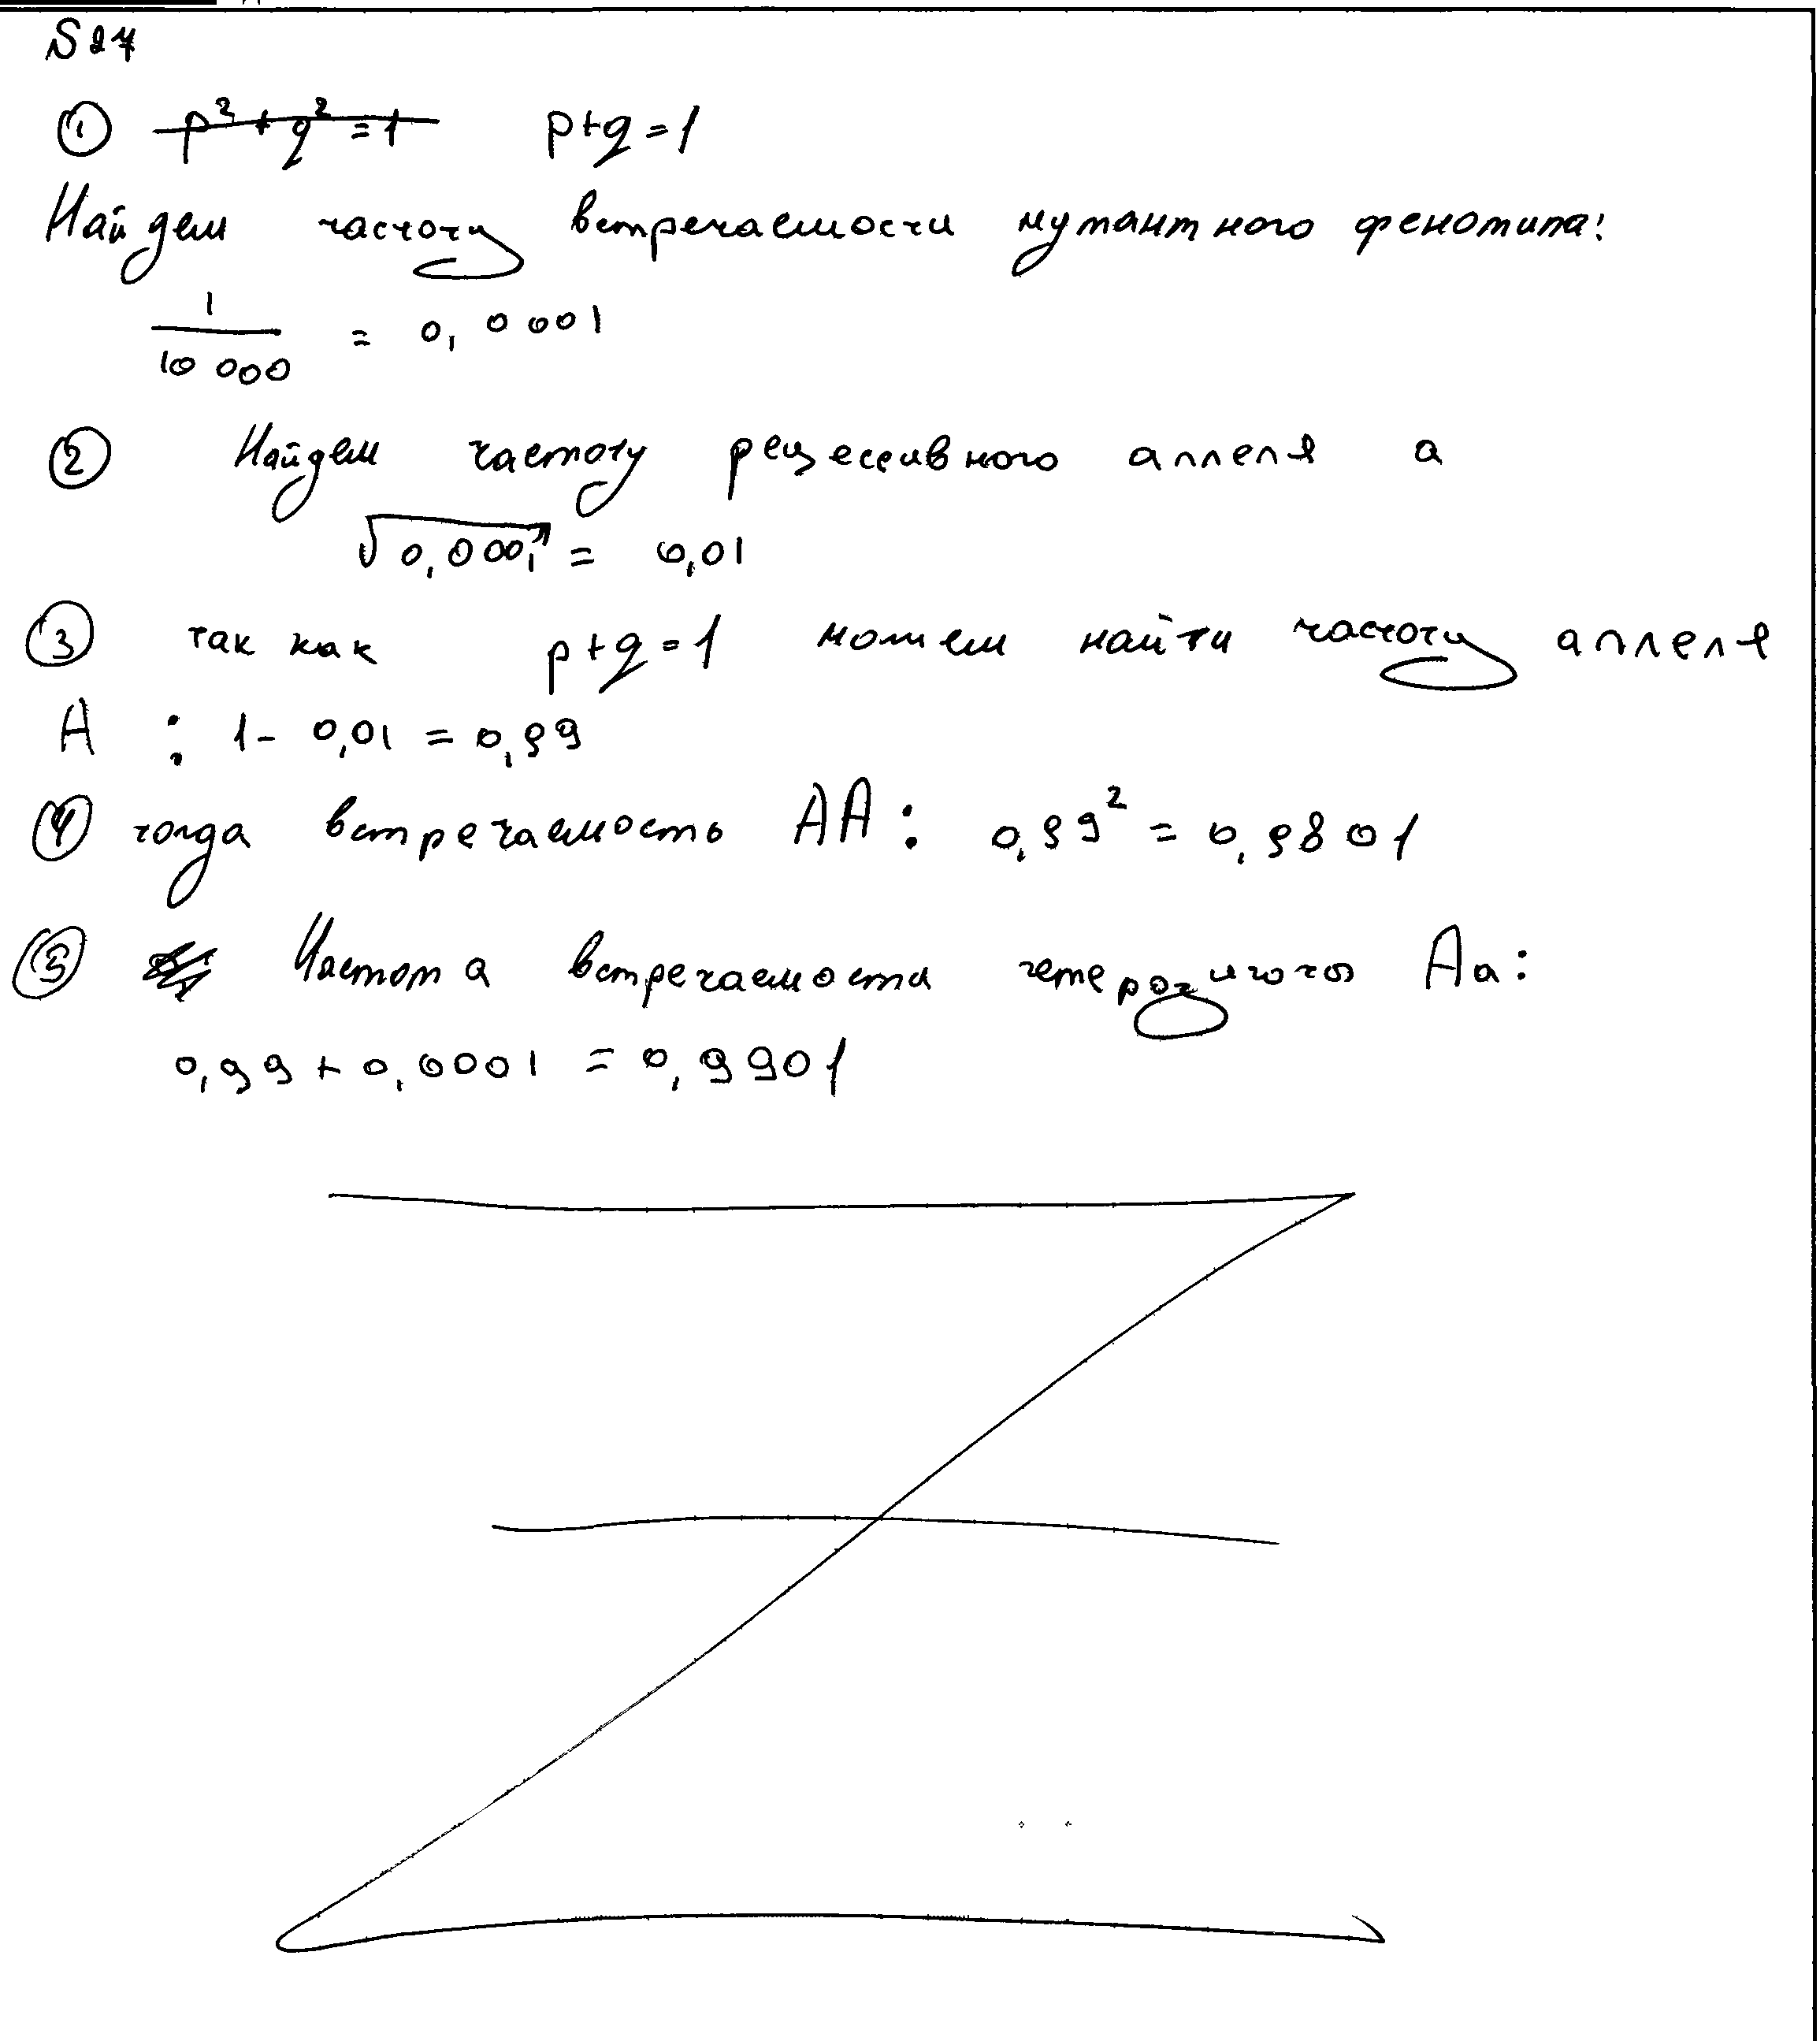 №27
① p² + q² = 1 p+q=1
Найдем частоту встречаемости мутантного фенотипа:
1/10 000 = 0,0001
② Найдем частоту рецессивного аллеля a
√0,0001 = 0,01
③ так как p+q=1 можем найти частоту аллеля
A : 1 - 0,01 = 0,99
④ тогда встречаемость AA: 0,99² = 0,9801
⑤ Частота встречаемости гетерозиготы Aa:
0,99 + 0,0001 = 0,9901